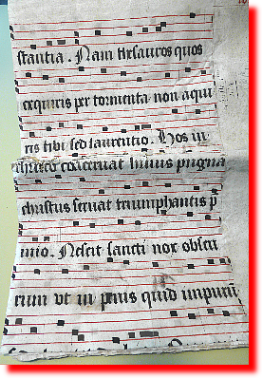 stantia . Nam thesauros quos
exquiris per tormenta non aqui
ris tibi sed laurentio . Hos in
christo coaceruat huius pugna
christus seruat triumphantis p
mio . Nescit sancti nox obscu
rum vt in penis quid impurū